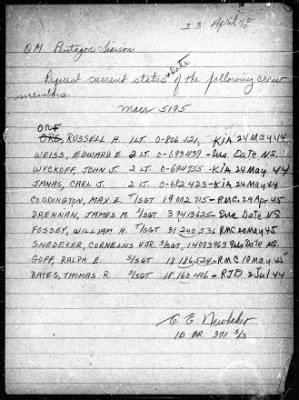 23 April 48
QM Pentagon Liaison
Request current status & date of the following crew
members
Macr 5195
ORF
ORE, RUSSELL H. 1LT 0-806121, KIA 24 May 44
WEISS, EDWARD E 2LT 0-693439 - Due Date N.S.
WYCKOFF, JOHN J. 2LT 0-694755 - KIA 24 May 44
JANAS, CARL J. 2LT 0-682423 - KIA 24 May 44
CODDINGTON, MAX E. T/SGT 19002715 - RMC 29 Apr 45
DRENNAN, JAMES M. S/SGT 39413625 - Due Date NS
FOSSEY, WILLIAM H. T/SGT 31240536 RMC 20 May 45
SNEDEKER, CORNELIUS V.JR. S/SGT, 14093963 Due Date NS.
GOFF, RALPH E. S/SGT 18186524 - RMC 10 May 45
BATES, THOMAS R. S/SGT 18160406 - RJD 2 Jul 44
E E Newbaker
ID BR 391 S/3